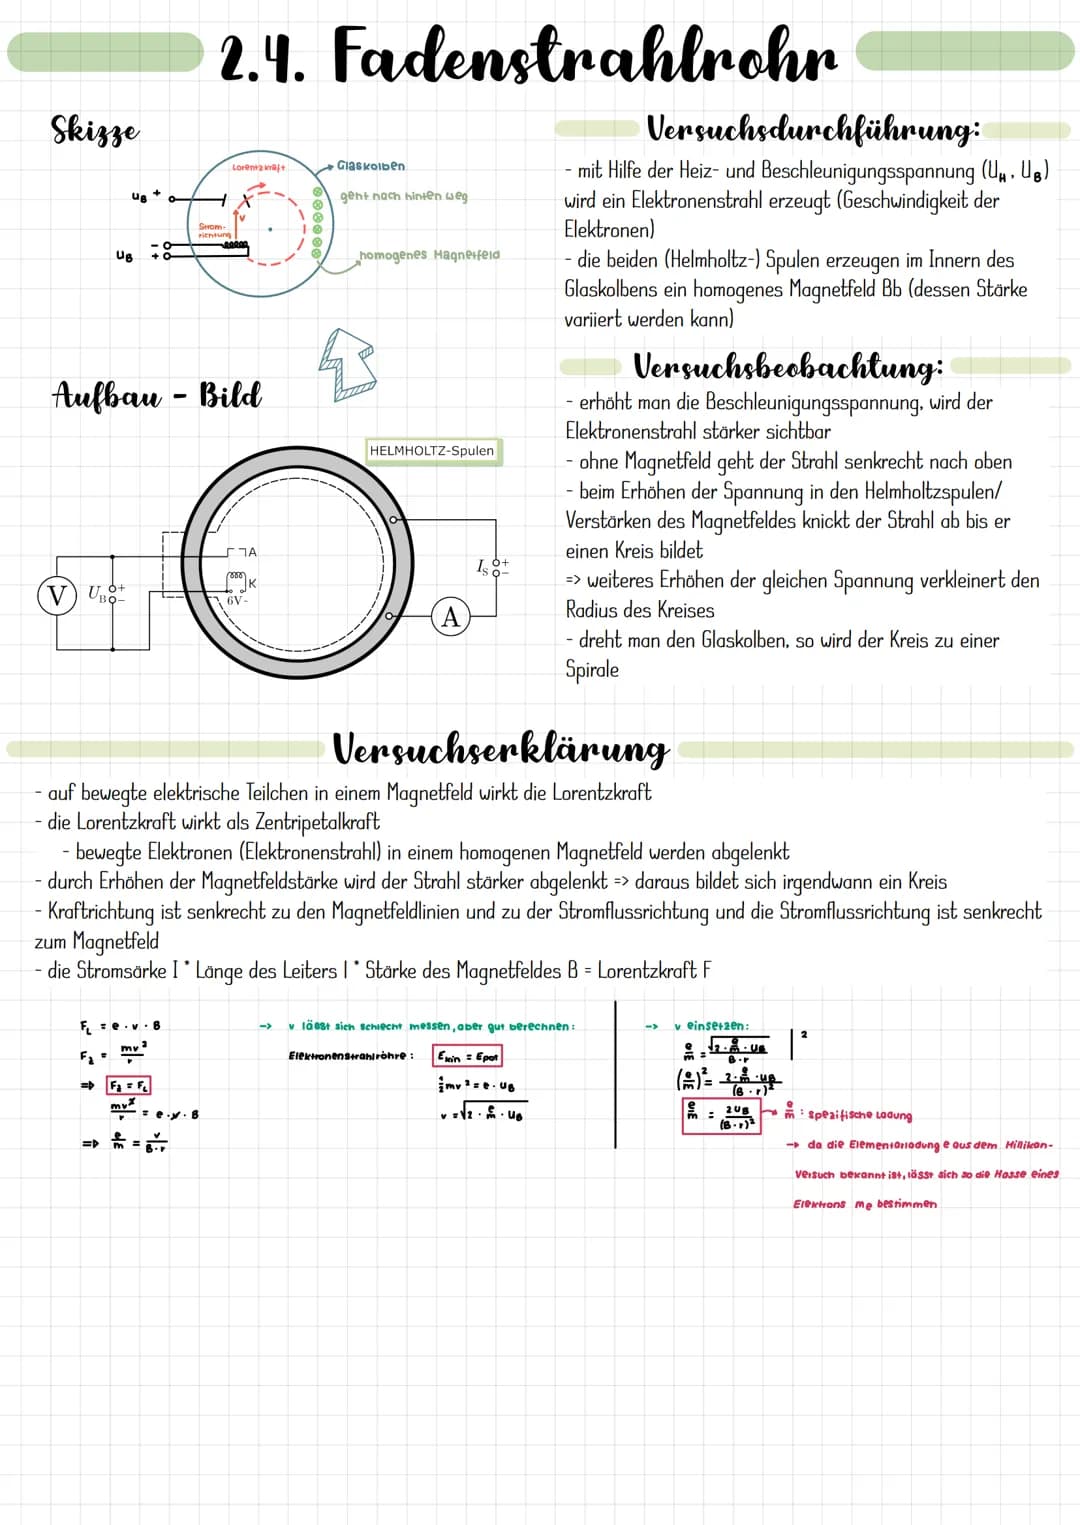 2.4. Fadenstrahlrohr
Skizze
Lorentzkraft
Glaskolben
geht nach hinten weg
UB +
v
Strom-
richtung
UB - +
homogenes Magnetfeld
Aufbau - Bild
HELMHOLTZ-Spulen
A
K
6V~
V
UB + -
IS + -
A
Versuchsdurchführung:
- mit Hilfe der Heiz- und Beschleunigungsspannung (UH, UB)
wird ein Elektronenstrahl erzeugt (Geschwindigkeit der
Elektronen)
- die beiden (Helmholtz-) Spulen erzeugen im Innern des
Glaskolbens ein homogenes Magnetfeld Bb (dessen Stärke
variiert werden kann)
Versuchsbeobachtung:
- erhöht man die Beschleunigungsspannung, wird der
Elektronenstrahl stärker sichtbar
- ohne Magnetfeld geht der Strahl senkrecht nach oben
- beim Erhöhen der Spannung in den Helmholtzspulen/
Verstärken des Magnetfeldes knickt der Strahl ab bis er
einen Kreis bildet
=> weiteres Erhöhen der gleichen Spannung verkleinert den
Radius des Kreises
- dreht man den Glaskolben, so wird der Kreis zu einer
Spirale
Versuchserklärung
- auf bewegte elektrische Teilchen in einem Magnetfeld wirkt die Lorentzkraft
- die Lorentzkraft wirkt als Zentripetalkraft
- bewegte Elektronen (Elektronenstrahl) in einem homogenen Magnetfeld werden abgelenkt
- durch Erhöhen der Magnetfeldstärke wird der Strahl stärker abgelenkt => daraus bildet sich irgendwann ein Kreis
- Kraftrichtung ist senkrecht zu den Magnetfeldlinien und zu der Stromflussrichtung und die Stromflussrichtung ist senkrecht
zum Magnetfeld
- die Stromsärke I * Länge des Leiters l * Stärke des Magnetfeldes B = Lorentzkraft F
FL = e · v · B
Fz = mv²/r
=> Fz = FL
mv²/r = e · v · B
=> e/m = v/B·r
-> v lässt sich schlecht messen, aber gut berechnen:
Elektronenstrahlröhre: Ekin = Epot
½mv² = e · UB
v = √2 · e/m · UB
-> v einsetzen:
e/m = √2 · e/m · UB / B·r | ²
(e/m)² = 2 · e/m · UB / (B · r)²
e/m = 2UB / (B · r)²
-> e/m : spezifische Ladung
-> da die Elementarladung e aus dem Millikan-
Versuch bekannt ist, lässt sich so die Masse eines
Elektrons me bestimmen